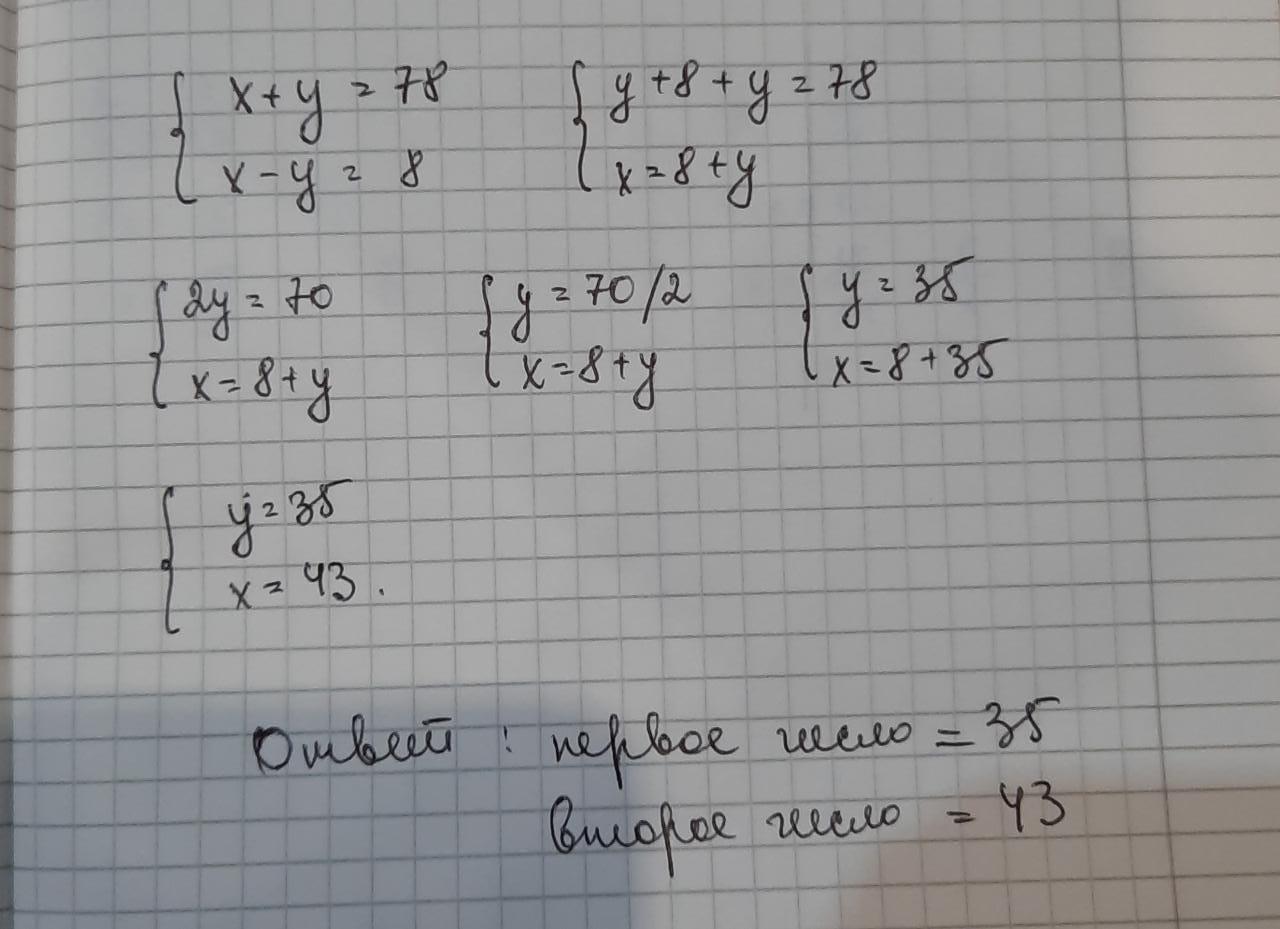 x+y = 78 y+8+y = 78
x-y = 8 x=8+y
2y = 70 y = 70/2 y = 35
x=8+y x=8+y x=8+35
y=35
x = 43.
Ответ : первое число = 35
второе число = 43